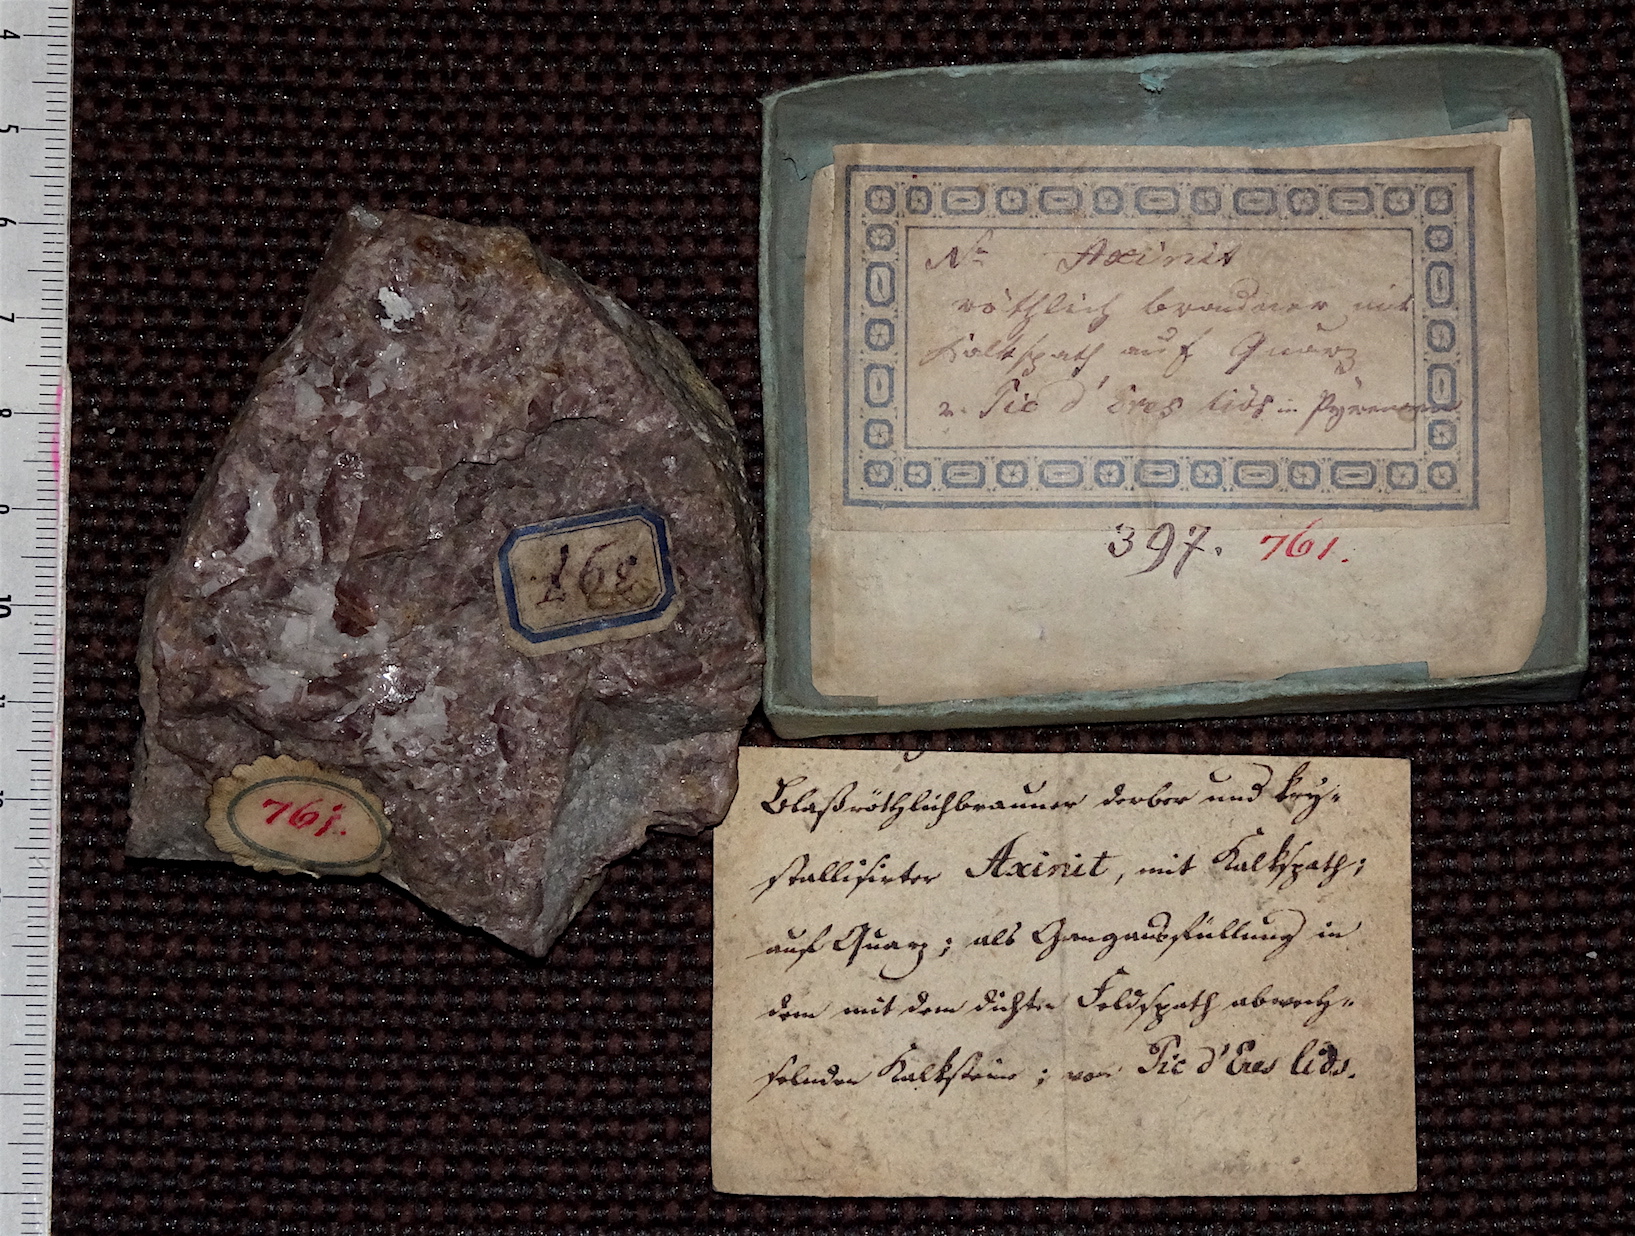 4
5
6
7
8
9
10
11
397.
761.
Nº Axinit
röthlich brauner mit
Kalkspath auf Quarz
v. Pic d'Eres lids in Pyrenaeen
397. 761.
Blaßröthlichbrauner derber und kry-
stallisirter Axinit, mit Kalkspath;
auf Quarz; als Gangausfüllung in
dem mit dem dichten Feldspath abwech-
selnden Kalkstein; vom Pic d'Eres lids.